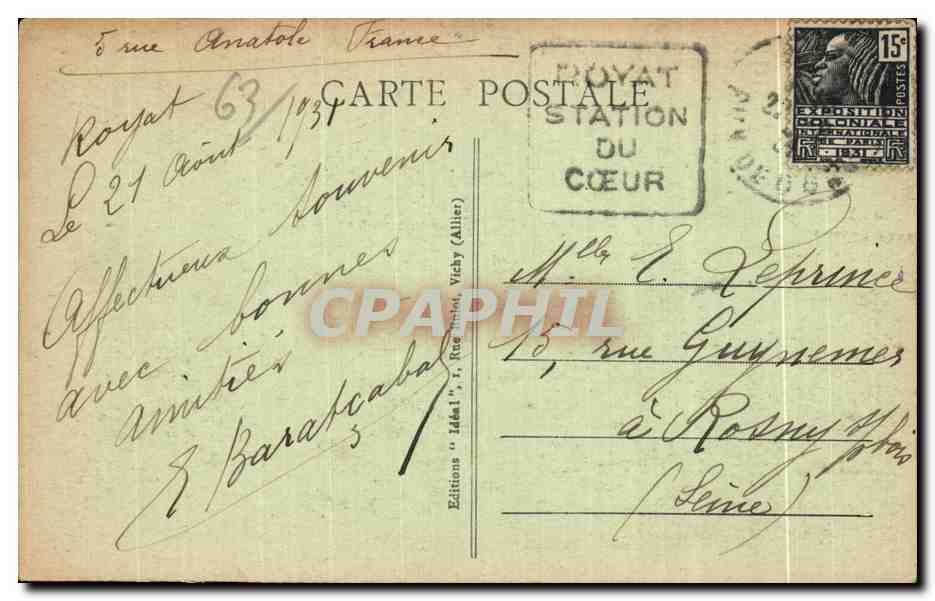 5 rue Anatole France
CARTE POSTALE
63
Royat
Le 21 Août 1931
Affectueux souvenir
avec bonnes
amitiés
E Baratçabal
ROYAT
STATION
DU
CŒUR
15c
POSTES
EXPOSITION
COLONIALE
INTERNATIONALE
DE PARIS
1931
PUY DE DOME
Mlle E. Leprince
15, rue Guynemer
à Rosny s/bois
(Seine)
Editions "Idéal", 1, Rue Bulot, Vichy (Allier)
CPAPHIL